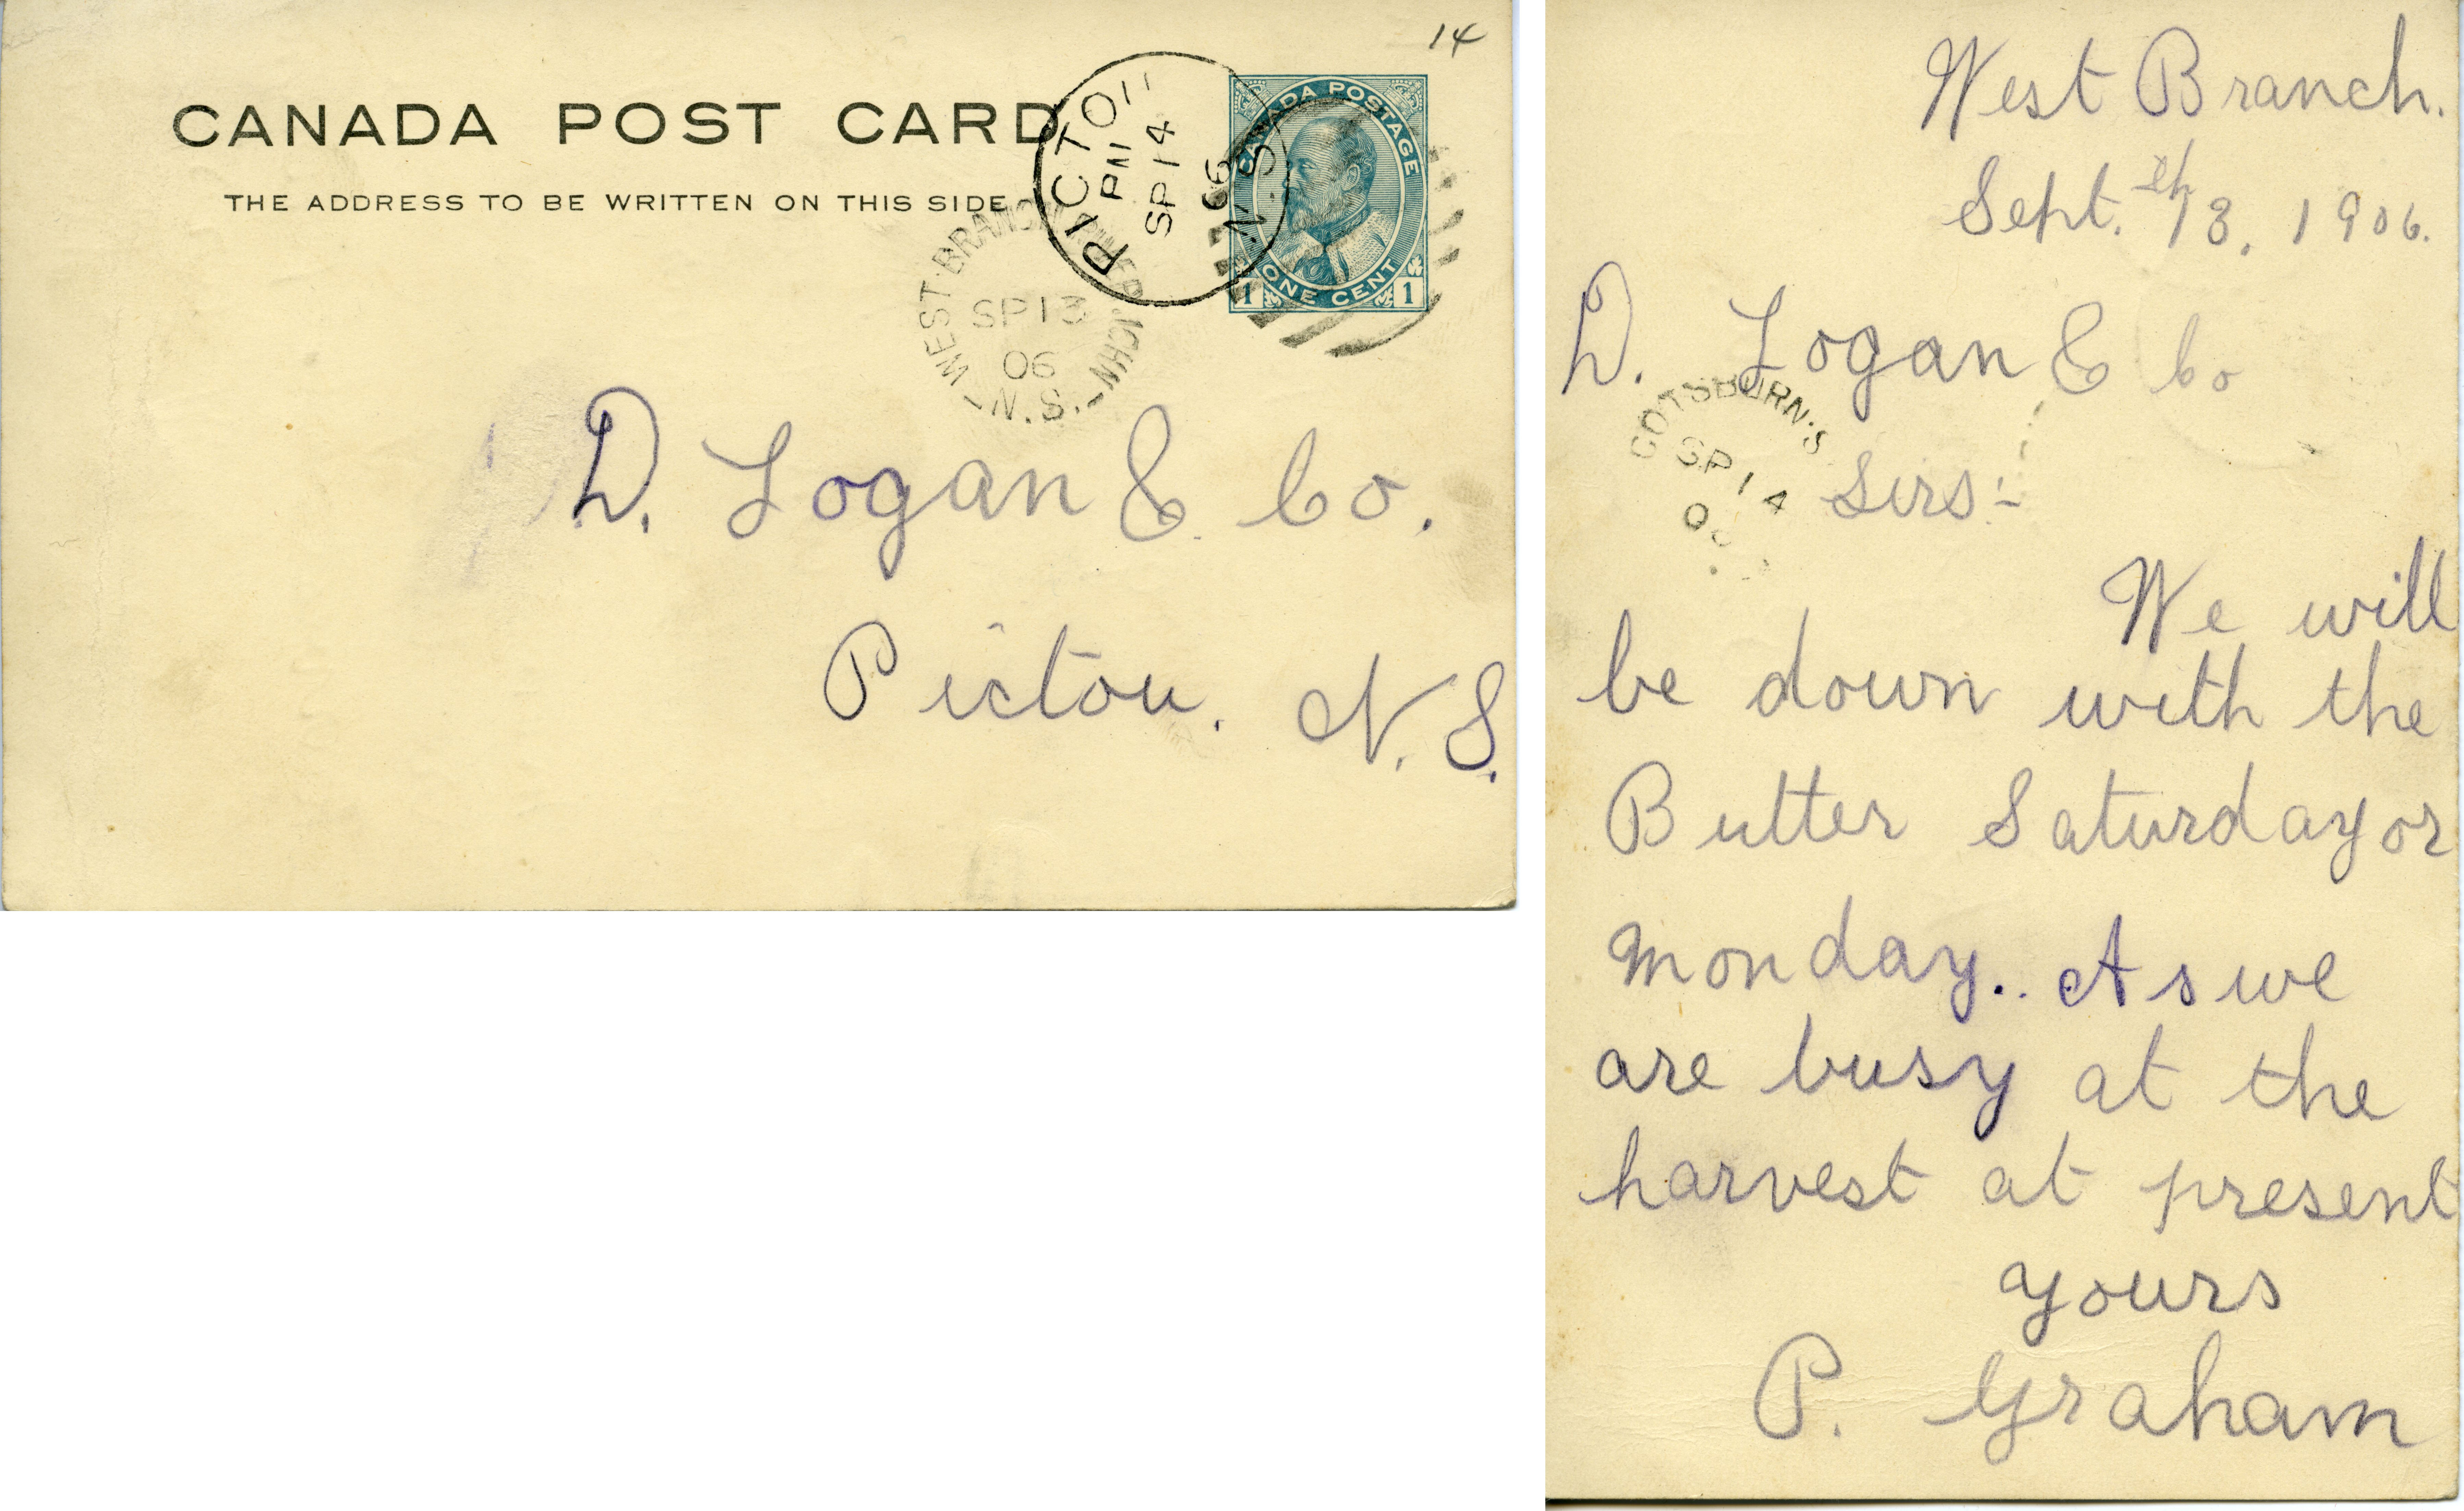 14
CANADA POST CARD
THE ADDRESS TO BE WRITTEN ON THIS SIDE
PICTOU
PM
SP 14
06
N.S.
CANADA POSTAGE
ONE CENT
1 1
WEST BRANCH RIVER JOHN
SP 13
06
N.S.
D. Logan & Co.
Pictou. N.S.
West Branch.
Sept. 13th. 1906.
D. Logan & Co
SCOTSBURN
SP 14
Sirs:-
We will
be down with the
Butter Saturday or
Monday.. As we
are busy at the
harvest at present
yours
P. Graham